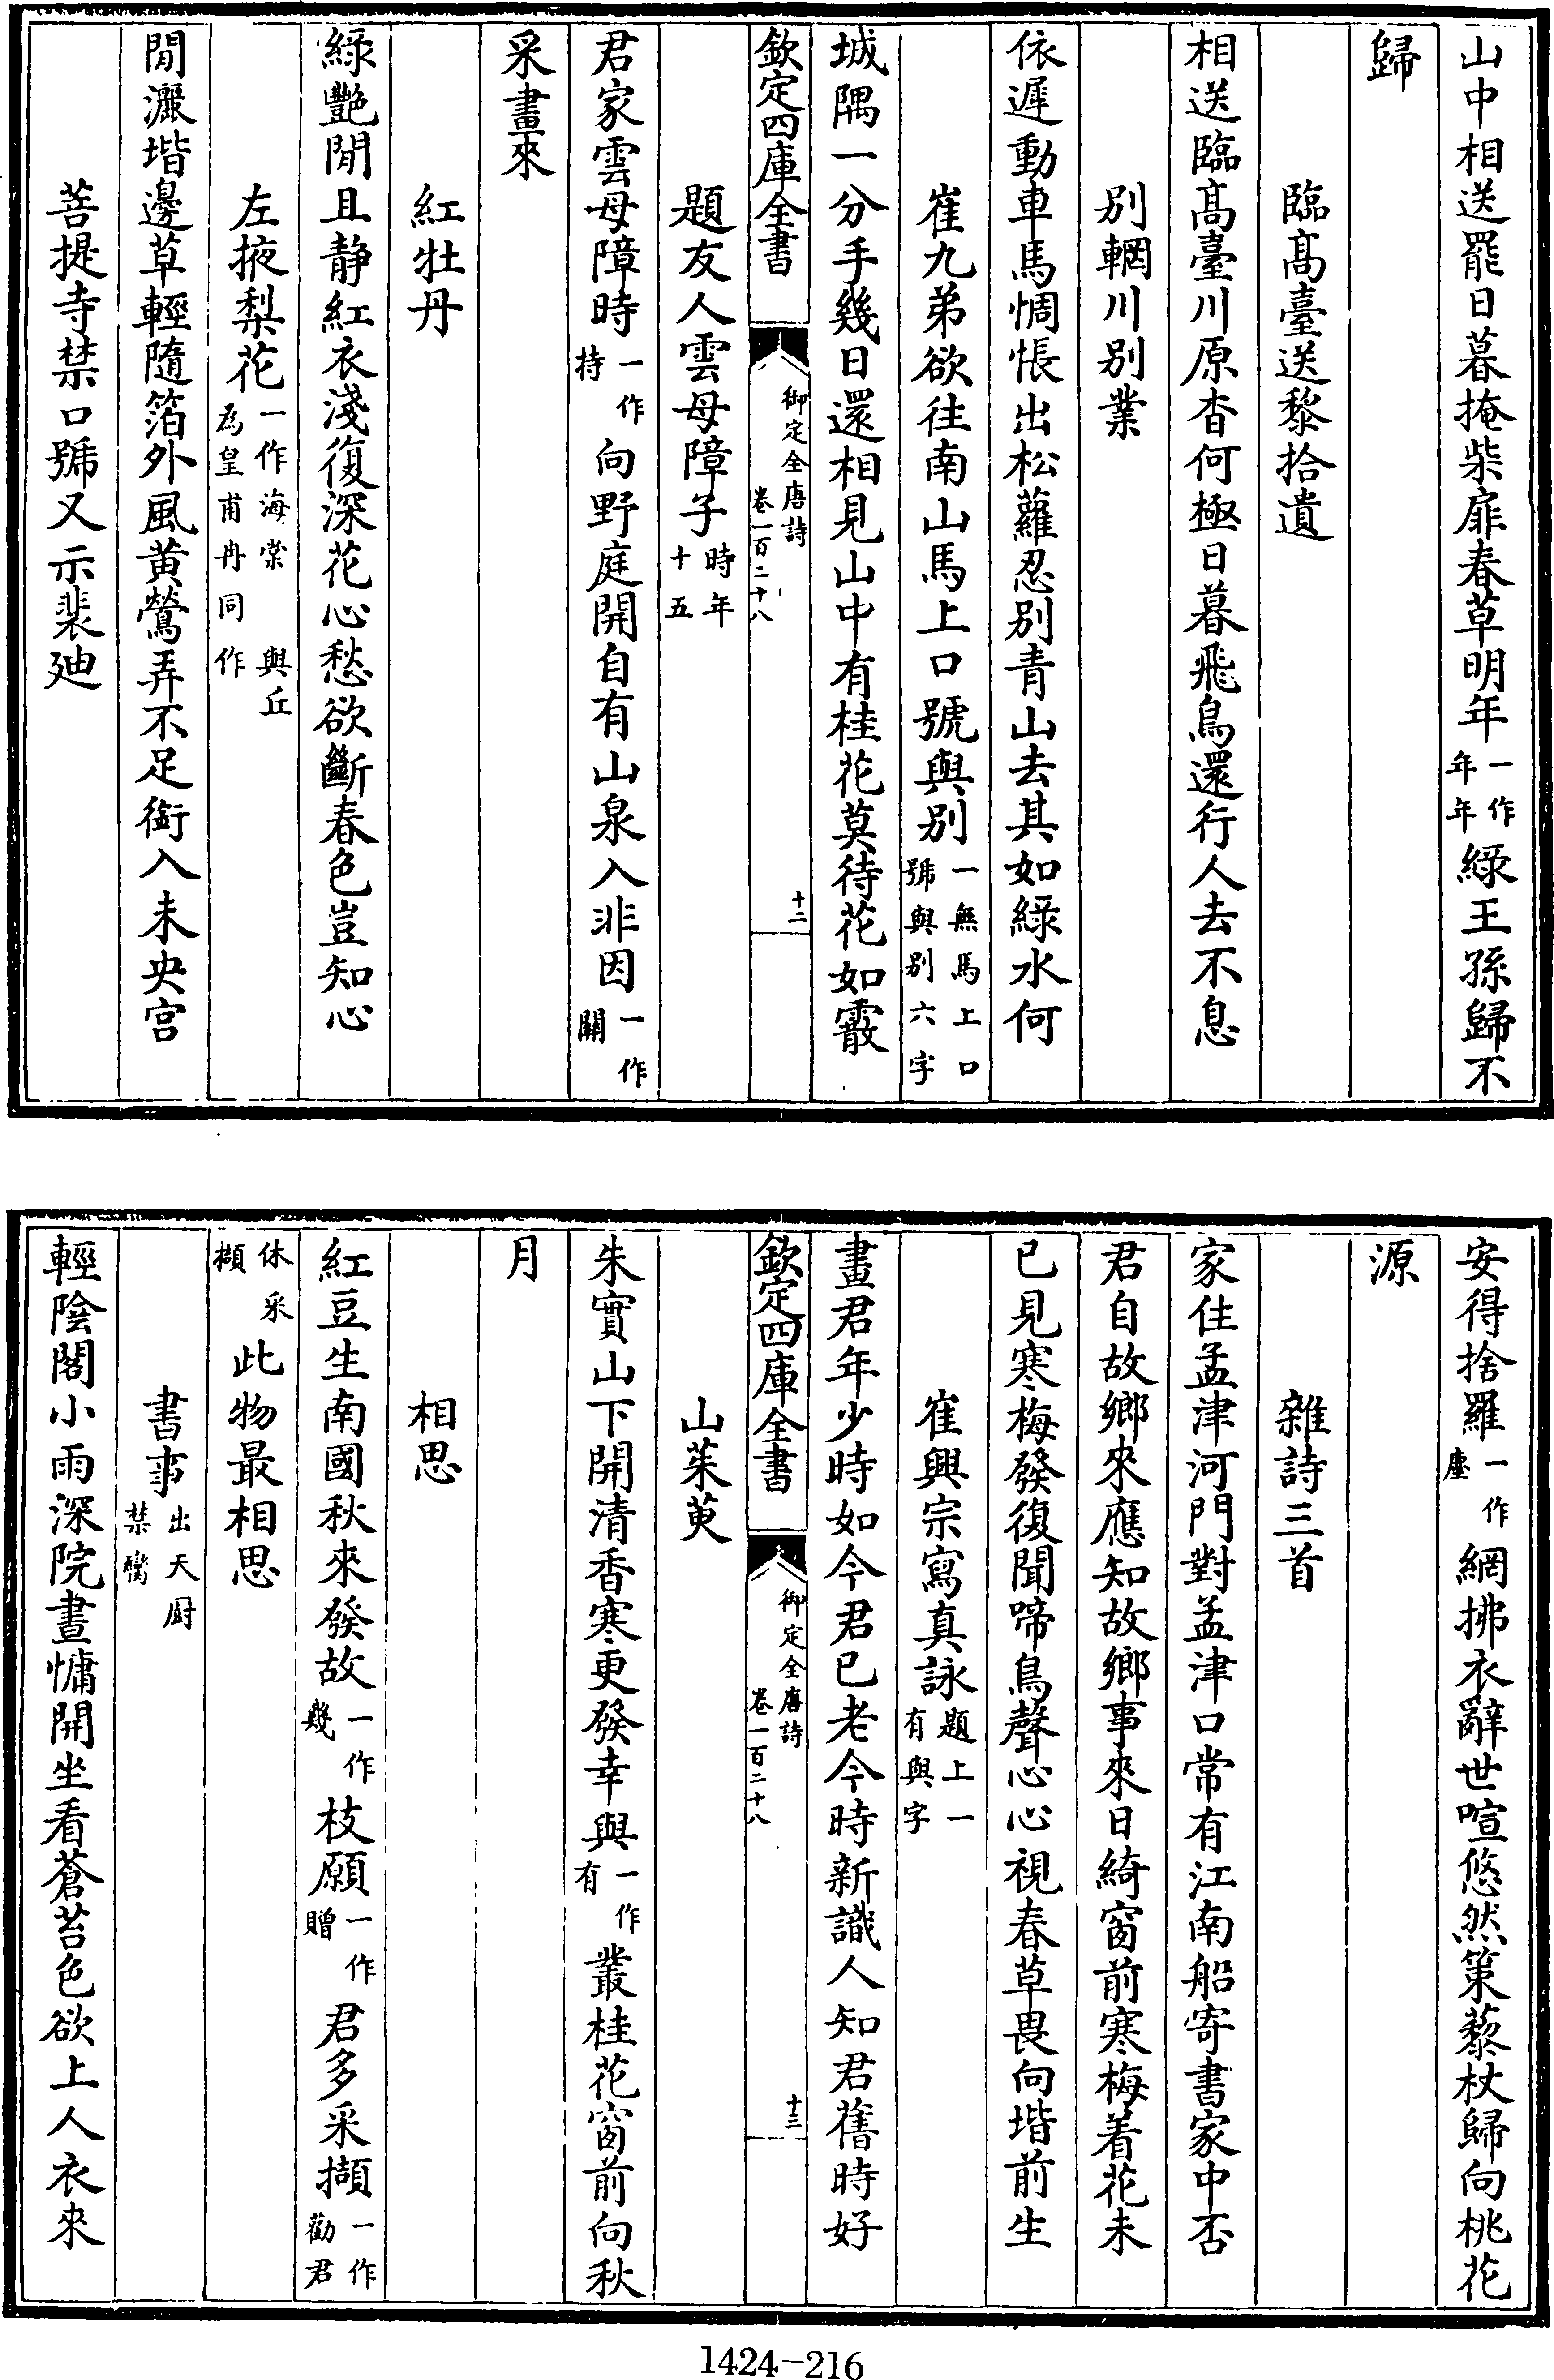 山中相送罷日暮掩柴扉春草明年一作年年綠王孫歸不
歸
臨高臺送黎拾遺
相送臨高臺川原杳何極日暮飛鳥還行人去不息
別輞川別業
依遲動車馬惆悵出松蘿忍別青山去其如綠水何
崔九弟欲往南山馬上口號與別一無馬上口號與別六字
城隅一分手幾日還相見山中有桂花莫待花如霰
欽定四庫全書
御定全唐詩
卷一百二十八
十二
題友人雲母障子時年十五
君家雲母障時一作持向野庭開自有山泉入非因一作關
采畫來
紅牡丹
綠艷閒且静紅衣淺復深花心愁欲斷春色豈知心
左掖梨花一作海棠與丘為皇甫冉同作
閒灑堦邊草輕隨箔外風黄鶯弄不足銜入未央宫
菩提寺禁口號又示裴迪
安得捨羅一作塵網拂衣辭世喧悠然策藜杖歸向桃花
源
雜詩三首
家住孟津河門對孟津口常有江南船寄書家中否
君自故鄉來應知故鄉事來日綺窗前寒梅着花未
已見寒梅發復聞啼鳥聲心心視春草畏向堦前生
崔興宗寫真詠題上一有與字
畫君年少時如今君已老今時新識人知君舊時好
欽定四庫全書
御定全唐詩
卷一百二十八
十三
山茱萸
朱實山下開清香寒更發幸與一作有叢桂花窗前向秋
月
相思
紅豆生南國秋來發故一作幾枝願一作贈君多采擷一作勸君
休采擷此物最相思
書事出天厨禁臠
輕陰閣小雨深院晝慵開坐看蒼苔色欲上人衣來
1424-216